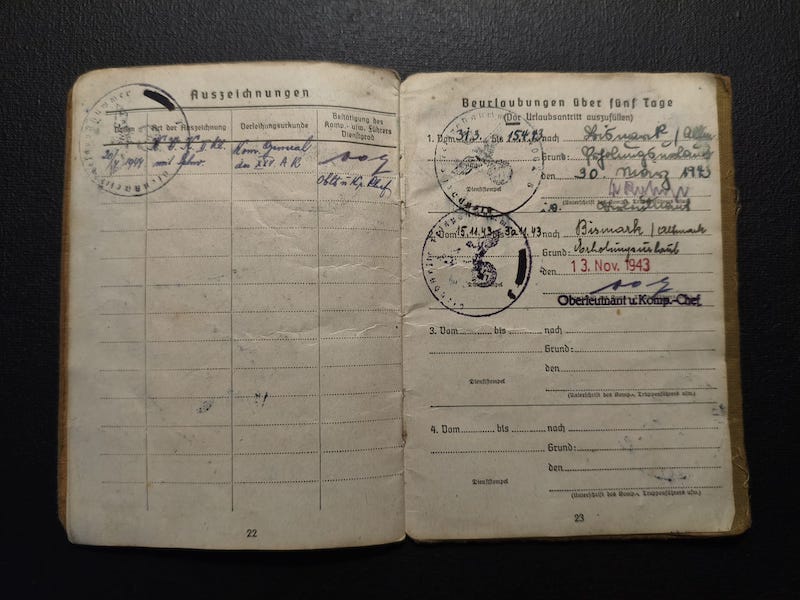 Auszeichnungen
Datum
Art der Auszeichnung
Verleihungsurkunde
Bestätigung des
Komp.- usw. Führers
Dienstgrad
K. V. K. II Kl.
mit Schw.
Kom. General
Oblt. u. Kp. Chef
22
Beurlaubungen über fünf Tage
(Vor Urlaubsantritt auszufüllen)
1. Vom 31.3. bis 15.4.43 nach Bismark / Altm.
Grund: Erholungsurlaub
den 30. März 1943
Dienststempel
(Unterschrift des Komp.-, Truppenführers usw.)
Vom 15.11.43 bis 30.11.43 nach Bismark / Altmark
Grund: Erholungsurlaub
den 13. Nov. 1943
Oberleutnant u. Komp.-Chef
3. Vom bis nach
Grund:
den
Dienststempel
(Unterschrift des Komp.-, Truppenführers usw.)
4. Vom bis nach
Grund:
den
Dienststempel
(Unterschrift des Komp.-, Truppenführers usw.)
23